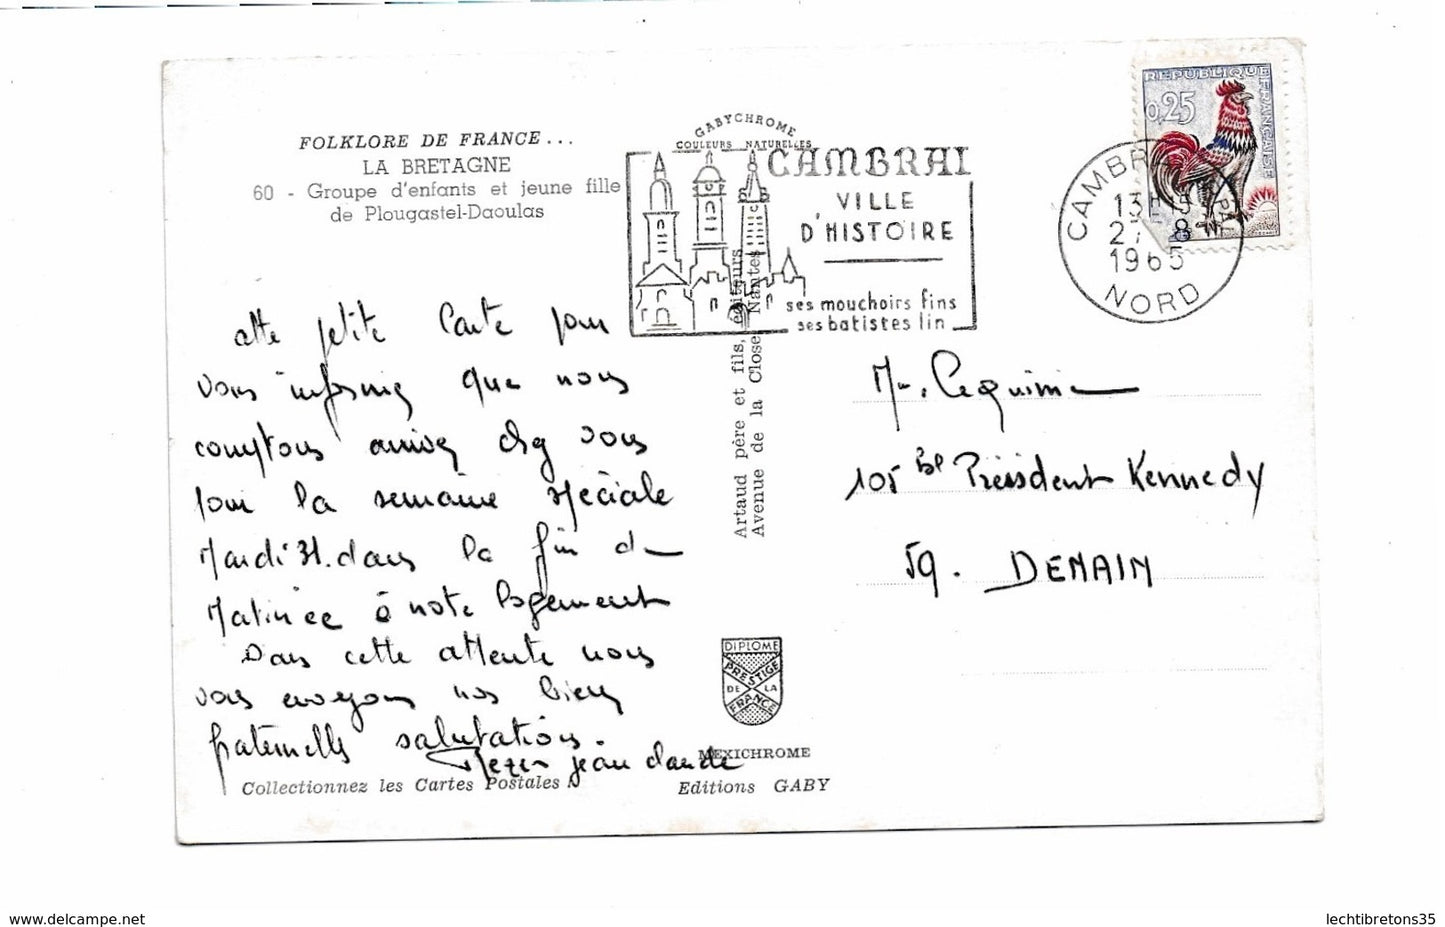 FOLKLORE DE FRANCE...
LA BRETAGNE
60 - Groupe d'enfants et jeune fille
de Plougastel-Daoulas
GABYCHROME
COULEURS NATURELLES
CAMBRAI
VILLE
D'HISTOIRE
ses mouchoirs fins
ses batistes lin
REPUBLIQUE FRANÇAISE
0,25
CAMBRAI
13H15
27 8
1965
NORD
Artaud père et fils, éditeurs
Avenue de la Close Nantes
cette petite Carte pour
vous informer que nous
comptons arriver chez vous
pour la semaine spéciale
Mardi 31. dans la fin de
Matinée à notre logement
Dans cette attente nous
vous envoyons nos biens
fraternelles salutations.
jean claude
Mr.
105 Bd Président Kennedy
59. DENAIN
DIPLOME
PRESTIGE
DE LA
FRANCE
MEXICHROME
Collectionnez les Cartes Postales
Editions GABY
www.delcampe.net
lechtibretons35